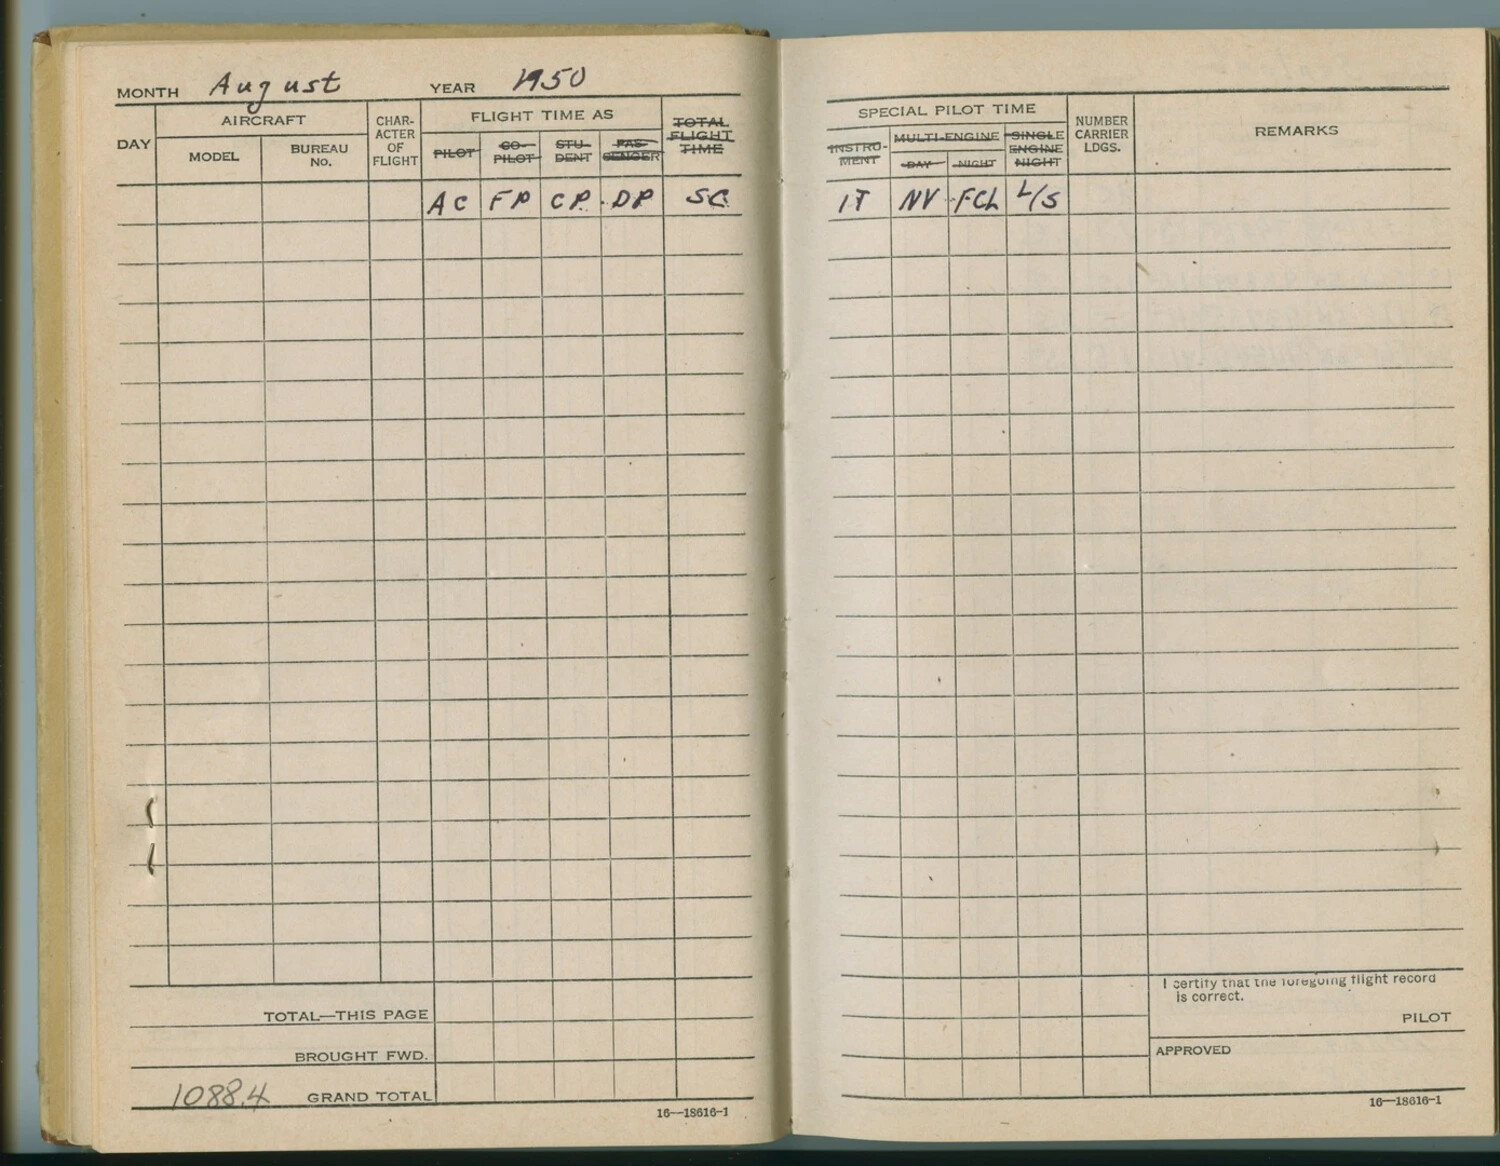 MONTH August YEAR 1950
DAY
AIRCRAFT
MODEL
BUREAU
No.
CHAR-
ACTER
OF
FLIGHT
FLIGHT TIME AS
PILOT
CO-
PILOT
STU-
DENT
PAS-
SENGER
TOTAL
FLIGHT
TIME
AC FP CP DP SC
TOTAL—THIS PAGE
BROUGHT FWD.
1088.4 GRAND TOTAL
16—18616-1
SPECIAL PILOT TIME
INSTRU-
MENT
MULTI-ENGINE
DAY
NIGHT
SINGLE
ENGINE
NIGHT
NUMBER
CARRIER
LDGS.
REMARKS
IT NV FCL L/S
I certify that the foregoing flight record
is correct.
PILOT
APPROVED
16—18616-1